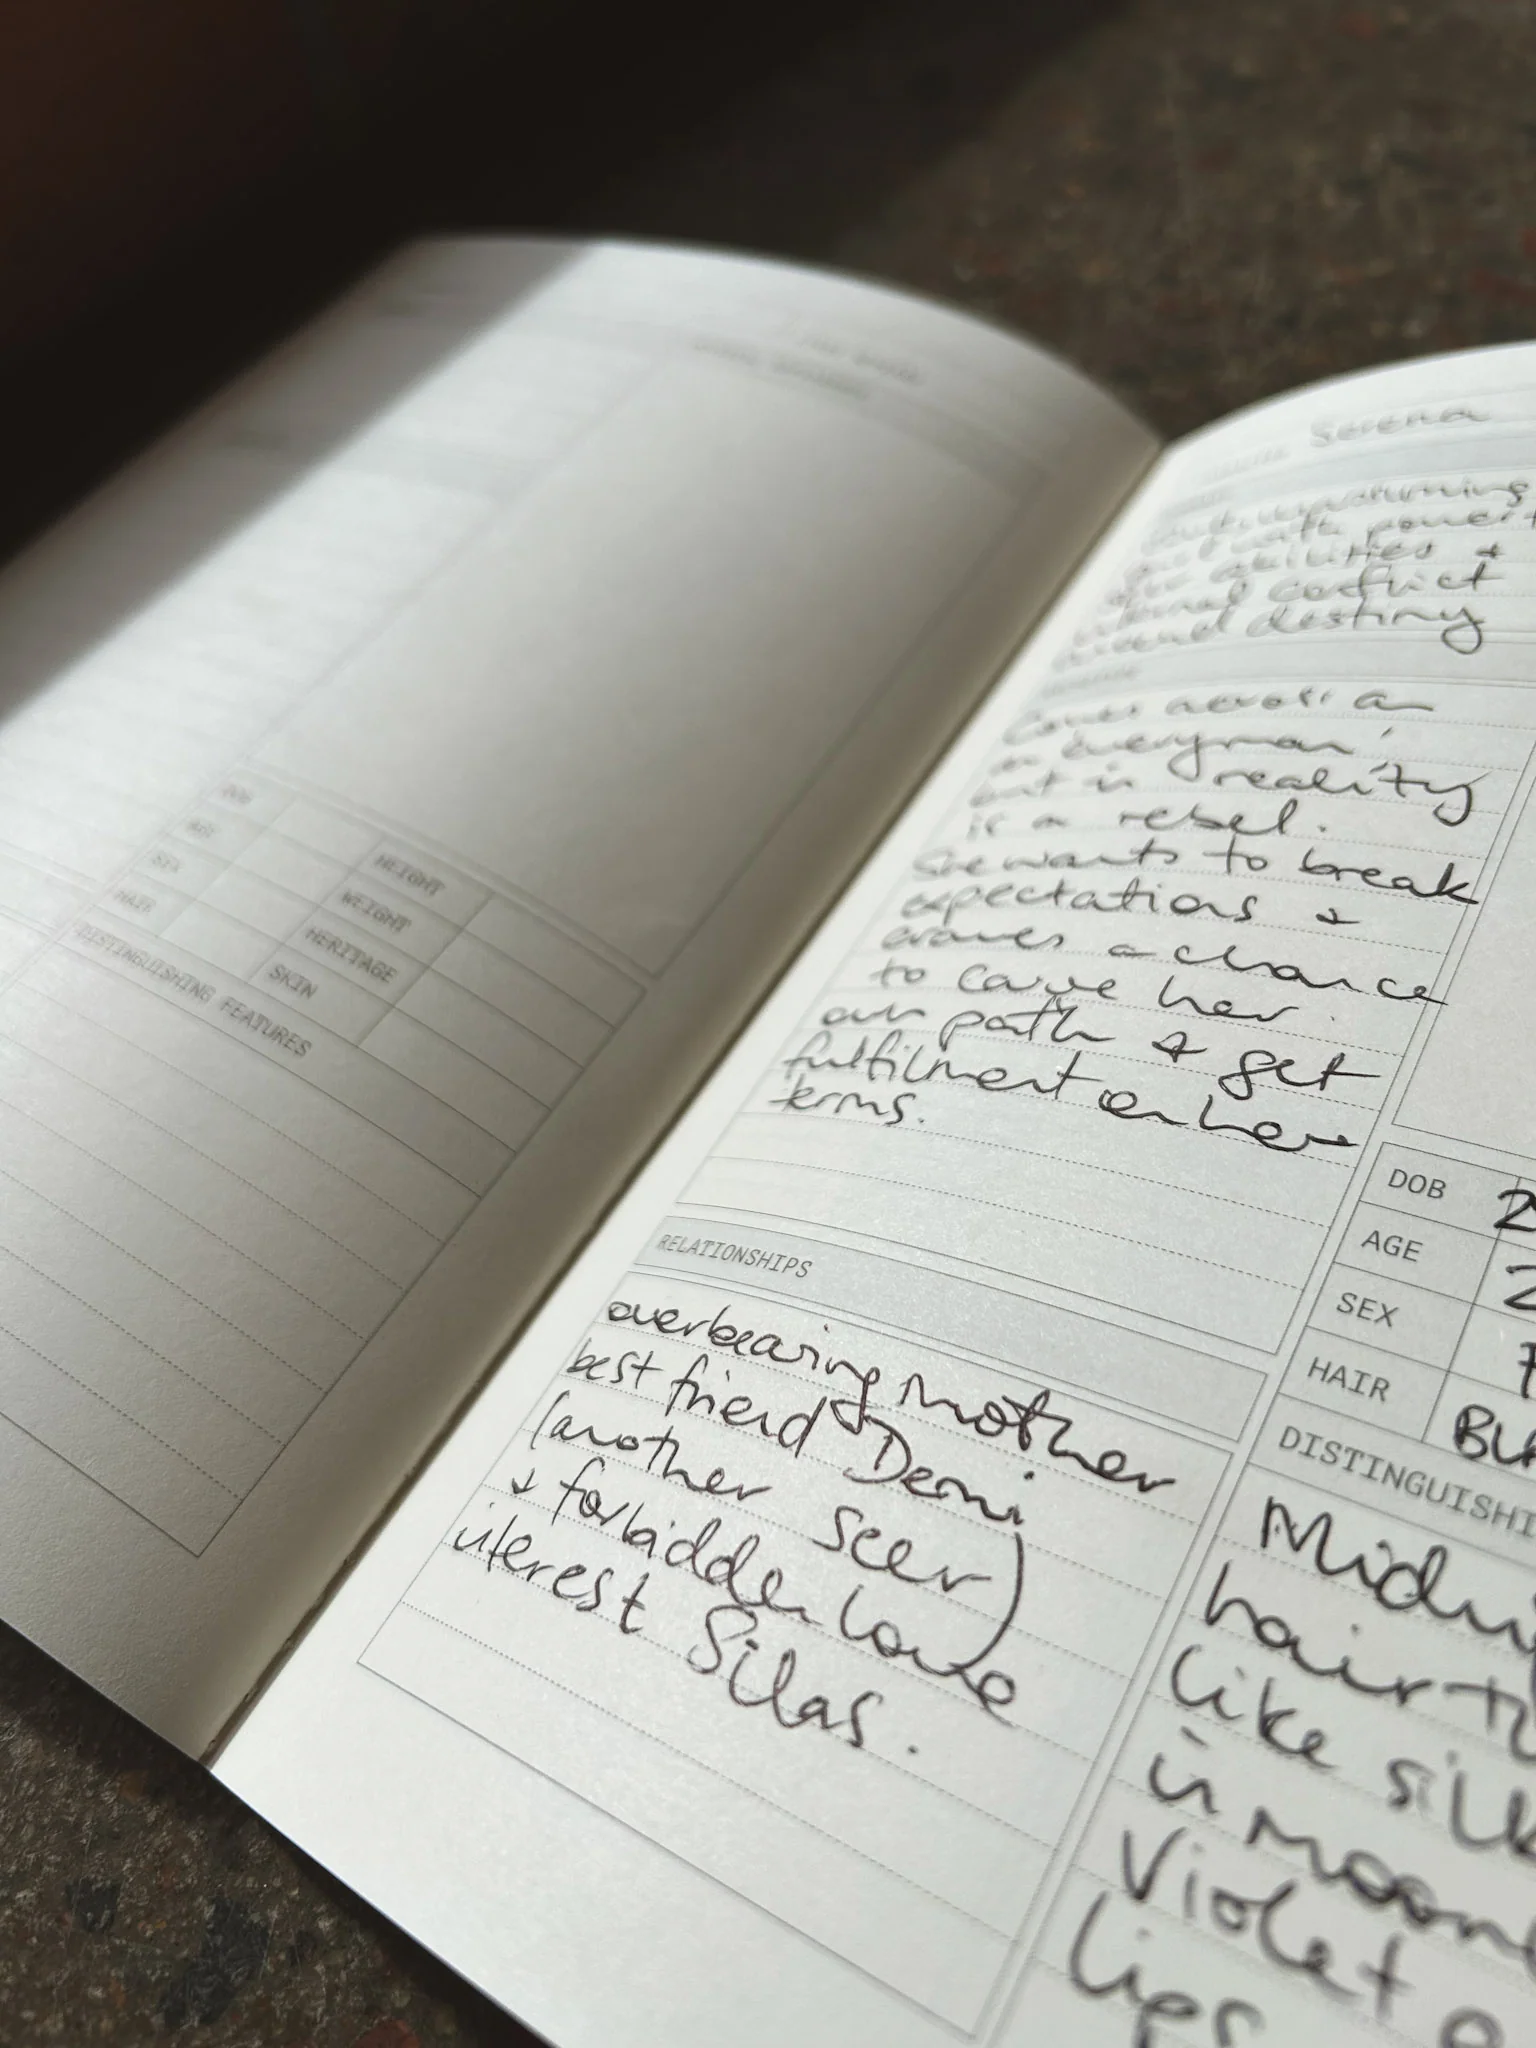 DOB
AGE
SEX
HAIR
HEIGHT
WEIGHT
HERITAGE
SKIN
DISTINGUISHING FEATURES
Serena
with power
abilities &
internal conflict
around destiny
Comes across as
an everyman,
but in reality
is a rebel.
She wants to break
expectations &
craves a chance
to carve her
own path & get
fulfilment on her
terms.
RELATIONSHIPS
overbearing mother
best friend Demi
(another seer)
& forbidden love
interest Silas.
DOB
AGE
SEX
HAIR
DISTINGUISHI
hair
like
in
Violet
lips